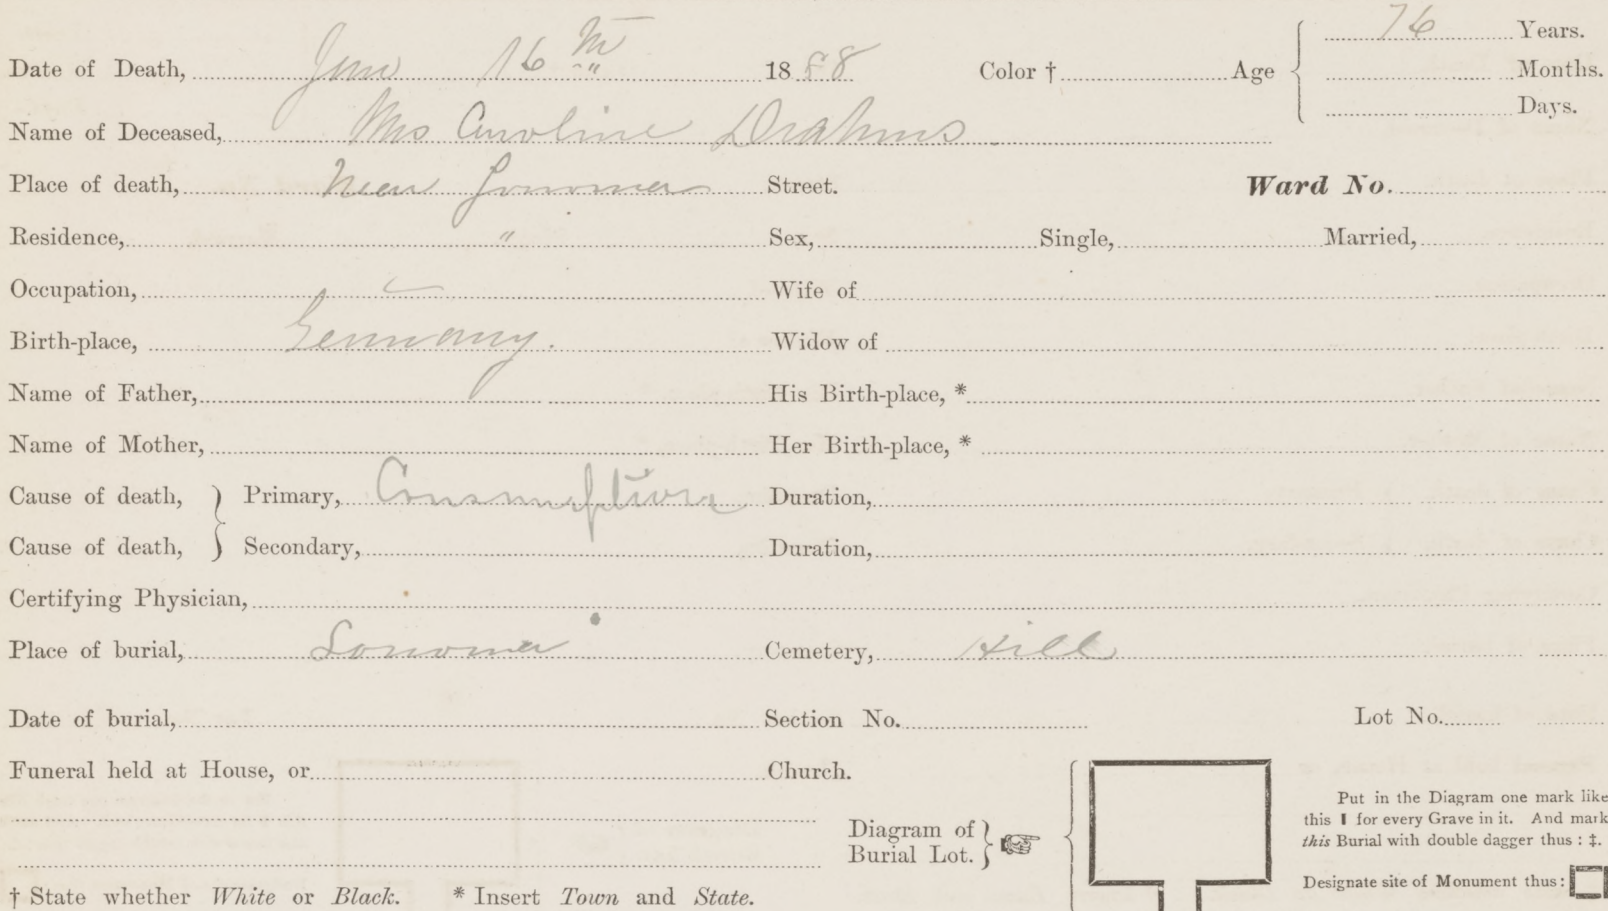 76 Years.
Date of Death, June 16th 1888 Color † Age Months.
Days.
Name of Deceased, Mrs Caroline Drahms
Place of death, Near Sonoma Street. Ward No.
Residence, " Sex, Single, Married,
Occupation, Wife of
Birth-place, Germany. Widow of
Name of Father, His Birth-place, *
Name of Mother, Her Birth-place, *
Cause of death, } Primary, Consumption Duration,
Cause of death, } Secondary, Duration,
Certifying Physician,
Place of burial, Sonoma Cemetery, Hill
Date of burial, Section No. Lot No.
Funeral held at House, or Church.
Diagram of
Burial Lot.
Put in the Diagram one mark like
this ▌ for every Grave in it. And mark
this Burial with double dagger thus : ‡.
Designate site of Monument thus :
† State whether White or Black. * Insert Town and State.